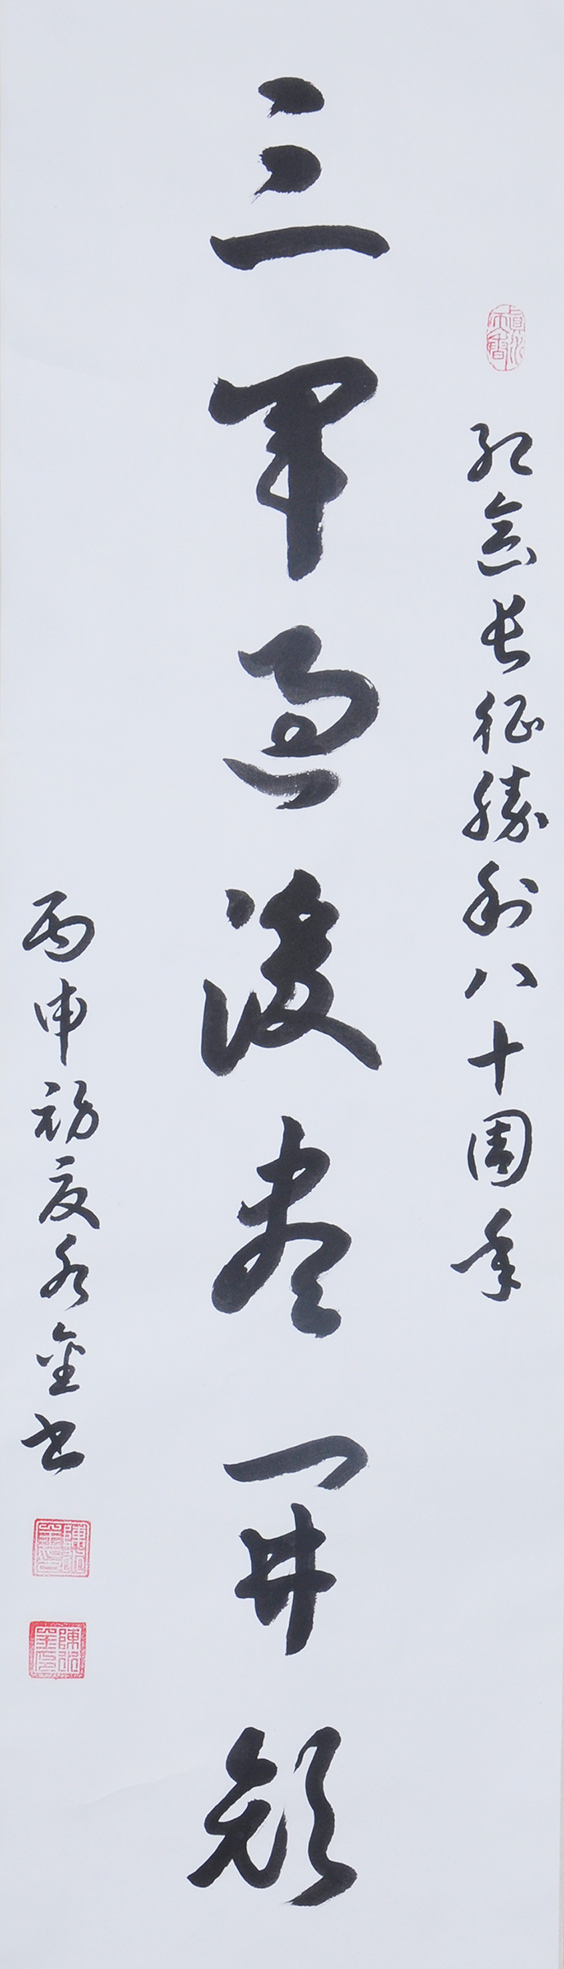 纪念长征勝利八十周年
三军过後尽开颜
丙申初夏永金书